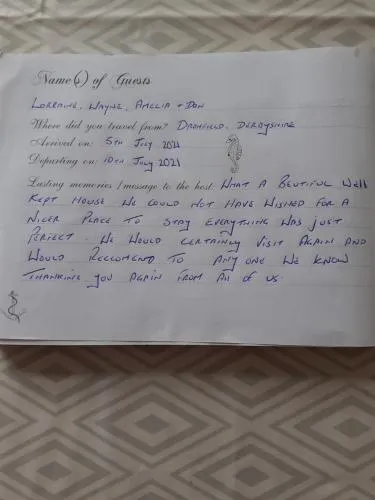 Name(s) of Guests
LORRAINE, WAYNE, AMELIA + DAN
Where did you travel from? DRONFIELD, DERBYSHIRE
Arrived on: 5TH JULY 2021
Departing on: 10TH JULY 2021
Lasting memories / message to the host: WHAT A BEUTIFUL WELL
KEPT HOUSE WE COULD NOT HAVE WISHED FOR A
NICER PLACE TO STAY EVERYTHING WAS JUST
PERFECT. WE WOULD CERTAINLY VISIT AGAIN AND
WOULD RECCOMEND TO ANY ONE WE KNOW
THANKING YOU AGAIN FROM ALL OF US.